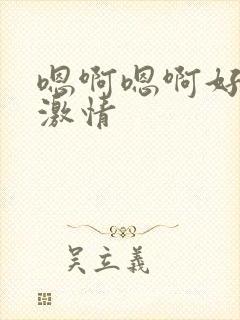 嗯啊嗯啊好
激情
吴立義